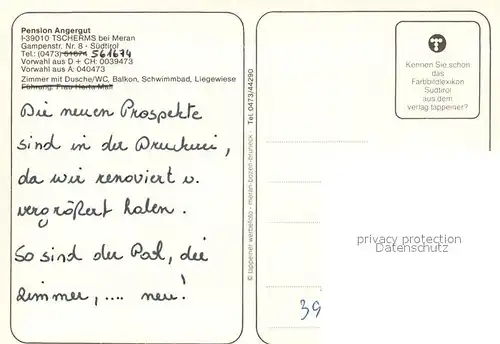 Pension Angergut
I-39010 TSCHERMS bei Meran
Gampenstr. Nr. 8 · Südtirol
Tel.: (0473) 51674 561674
Vorwahl aus D + CH: 0039473
Vorwahl aus A: 040473
Zimmer mit Dusche/WC, Balkon, Schwimmbad, Liegewiese
Führung: Frau Herta Matt
Die neuen Prospekte
sind in der Druckerei,
da wir renoviert u.
vergrößert haben.
So sind der Pool, die
Zimmer, .... neu!
© tappeiner werbefoto · meran-bozen-bruneck · Tel. 0473/44290
Kennen Sie schon
das
Farbbildlexikon
Südtirol
aus dem
verlag tappeiner?
privacy protection
oldthing.com
39